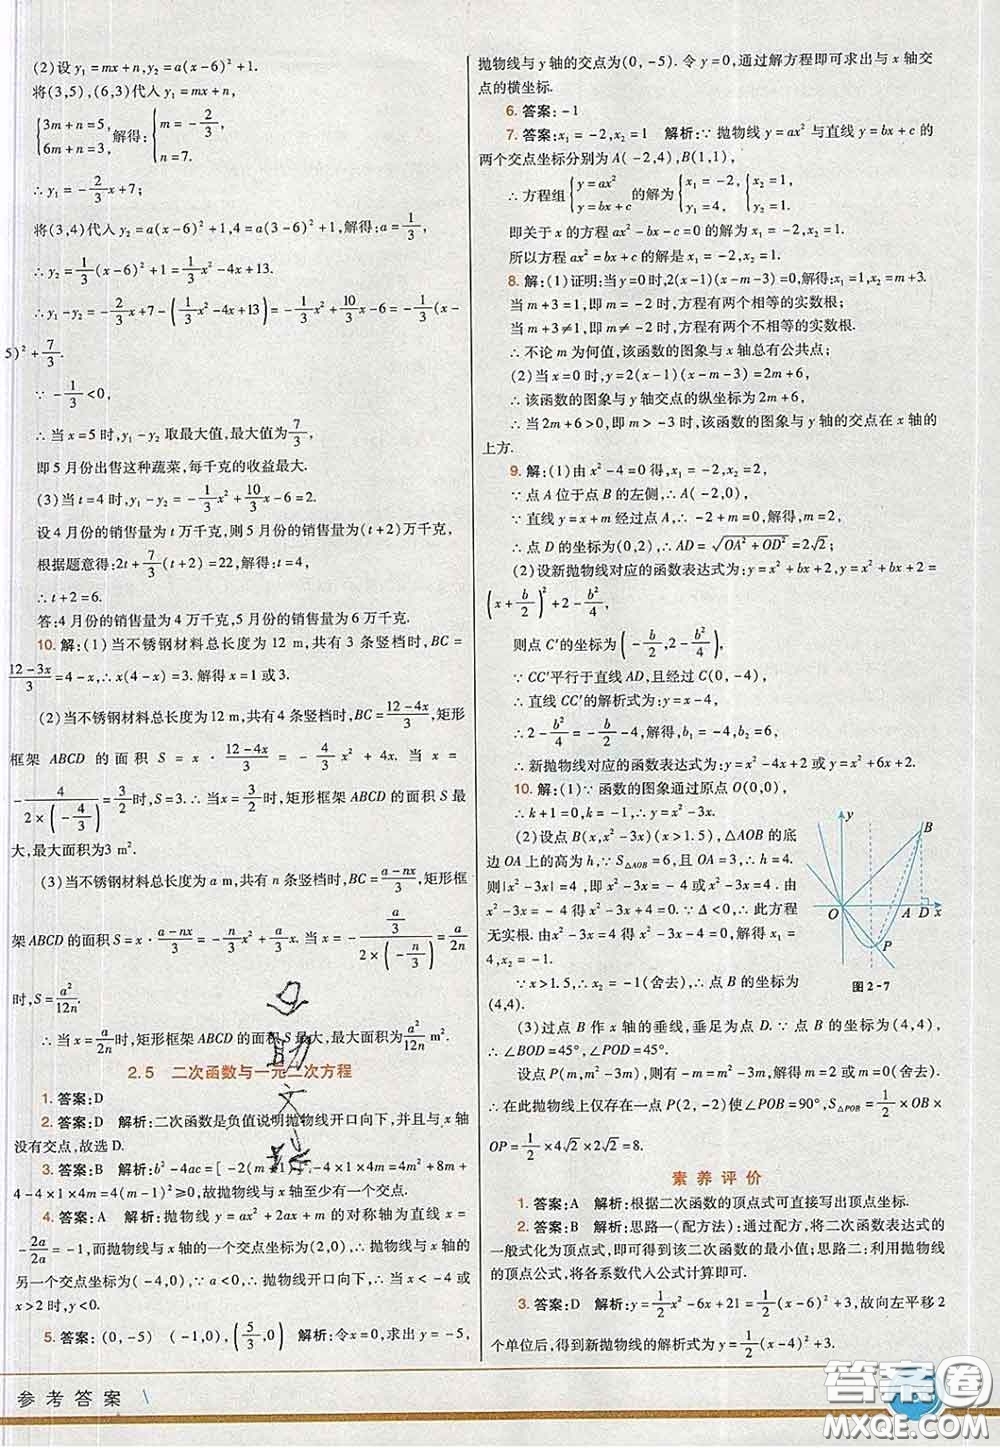 (2)设 y₁=mx+n,y₂=a(x-6)²+1.
将(3,5),(6,3)代入 y₁=mx+n,
{3m+n=5, 6m+n=3, 解得:{m=-2/3, n=7.
∴y₁=-2/3x+7;
将(3,4)代入 y₂=a(x-6)²+1,4=a(3-6)²+1,解得:a=1/3,
∴y₂=1/3(x-6)²+1=1/3x²-4x+13.
∴y₁-y₂=-2/3x+7-(1/3x²-4x+13)=-1/3x²+10/3x-6=-1/3(x-
5)²+7/3.
∵-1/3<0,
∴当 x=5 时,y₁-y₂ 取最大值,最大值为7/3,
即 5 月份出售这种蔬菜,每千克的收益最大.
(3)当 t=4 时,y₁-y₂=-1/3x²+10/3x-6=2.
设 4 月份的销售量为 t 万千克,则 5 月份的销售量为(t+2)万千克,
根据题意得:2t+7/3(t+2)=22,解得:t=4,
∴t+2=6.
答:4 月份的销售量为 4 万千克,5 月份的销售量为 6 万千克.
10. 解:(1)当不锈钢材料总长度为 12 m,共有 3 条竖档时,BC=
(12-3x)/3=4-x,∴x(4-x)=3. 解得 x=1 或 3.
(2)当不锈钢材料总长度为 12 m,共有 4 条竖档时,BC=(12-4x)/3,矩形
框架 ABCD 的面积 S=x·(12-4x)/3=-4/3x²+4x. 当 x=
-4/(2×(-4/3))=3/2时,S=3. ∴当x=3/2时,矩形框架 ABCD 的面积 S 最
大,最大面积为3 m².
(3)当不锈钢材料总长度为 a m,共有 n 条竖档时,BC=(a-nx)/3,矩形框
架 ABCD 的面积 S=x·(a-nx)/3=-n/3x²+a/3x. 当 x=-(a/3)/(2×(-n/3))=a/2n
时,S=a²/12n.
∴当 x=a/2n时,矩形框架 ABCD 的面积 S 最大,最大面积为a²/12n m².
2.5 二次函数与一元二次方程
1. 答案:D
2. 答案:D 解析:二次函数是负值说明抛物线开口向下,并且与 x 轴
没有交点,故选 D.
3. 答案:B 解析:b²-4ac=[-2(m+1)]²-4×1×4m=4m²+8m+
4-4×1×4m=4(m-1)²≥0,故抛物线与 x 轴至少有一个交点.
4. 答案:A 解析:抛物线 y=ax²+2ax+m 的对称轴为直线 x=
-2a/2a=-1,而抛物线与 x 轴的一个交点坐标为(2,0),∴抛物线与 x 轴的
另一个交点坐标为(-4,0),∵a<0,∴抛物线开口向下,∴当 x<-4 或
x>2 时,y<0.
5. 答案:(0,-5) (-1,0),(5/3,0) 解析:令 x=0,求出 y=-5,
抛物线与 y 轴的交点为(0,-5). 令 y=0,通过解方程即可求出与 x 轴交
点的横坐标.
6. 答案:-1
7. 答案:x₁=-2,x₂=1 解析:∵抛物线 y=ax² 与直线 y=bx+c 的
两个交点坐标分别为 A(-2,4),B(1,1),
∴方程组{y=ax² y=bx+c的解为{x₁=-2, y₁=4, {x₂=1, y₂=1.
即关于 x 的方程 ax²-bx-c=0 的解为 x₁=-2,x₂=1.
所以方程 ax²=bx+c 的解是 x₁=-2,x₂=1.
8. 解:(1)证明:当 y=0 时,2(x-1)(x-m-3)=0,解得:x₁=1,x₂=m+3.
当 m+3=1,即 m=-2 时,方程有两个相等的实数根;
当 m+3≠1,即 m≠-2 时,方程有两个不相等的实数根.
∴不论 m 为何值,该函数的图象与 x 轴总有公共点;
(2)当 x=0 时,y=2(x-1)(x-m-3)=2m+6,
∴该函数的图象与 y 轴交点的纵坐标为 2m+6,
∴当 2m+6>0,即 m>-3 时,该函数的图象与 y 轴的交点在 x 轴的
上方.
9. 解:(1)由 x²-4=0 得,x₁=-2,x₂=2,
∵点 A 位于点 B 的左侧,∴A(-2,0),
∵直线 y=x+m 经过点 A,∴-2+m=0,解得,m=2,
∴点 D 的坐标为(0,2),∴AD=√(OA²+OD²)=2√2;
(2)设新抛物线对应的函数表达式为:y=x²+bx+2,y=x²+bx+2=
(x+b/2)²+2-b²/4,
则点 C′的坐标为(-b/2,2-b²/4),
∵CC′平行于直线 AD,且经过 C(0,-4),
∴直线 CC′的解析式为:y=x-4,
∴2-b²/4=-b/2-4,解得,b₁=-4,b₂=6,
∴新抛物线对应的函数表达式为:y=x²-4x+2 或 y=x²+6x+2.
10. 解:(1)∵函数的图象通过原点 O(0,0),
∴k+1=0,k=-1,∴y=x²-3x.
(2)设点 B(x,x²-3x)(x>1.5),△AOB 的底
边 OA 上的高为 h,∵S△AOB=6,且 OA=3,∴h=4.
则|x²-3x|=4,即 x²-3x=-4 或 x²-3x=4. 由
x²-3x=-4 得 x²-3x+4=0. ∵Δ<0,∴此方程
无实根. 由 x²-3x=4 得 x²-3x-4=0. 解得 x₁=
4,x₂=-1.
∵x>1.5,∴x₂=-1(舍去),∴点 B 的坐标为
(4,4).
y
B
O
A
D
x
P
图 2-7
(3)过点 B 作 x 轴的垂线,垂足为点 D. ∵点 B 的坐标为(4,4),
∴∠BOD=45°,∠POD=45°.
设点 P(m,m²-3m),则 m=-(m²-3m),解得 m=2 或 m=0(舍去).
∴在此抛物线上仅存在一点 P(2,-2)使∠POB=90°,S△POB=1/2×OB×
OP=1/2×4√2×2√2=8.
素养评价
1. 答案:A 解析:根据二次函数的顶点式可直接写出顶点坐标.
2. 答案:B 解析:思路一(配方法):通过配方,将二次函数表达式的
一般式化为顶点式,即可得到该二次函数的最小值;思路二:利用抛物线
的顶点公式,将各系数代入公式计算即可.
3. 答案:D 解析:y=1/2x²-6x+21=1/2(x-6)²+3,故向左平移 2
个单位后,得到新抛物线的解析式为 y=1/2(x-4)²+3.
参考答案
答案卷
MXQE.COM